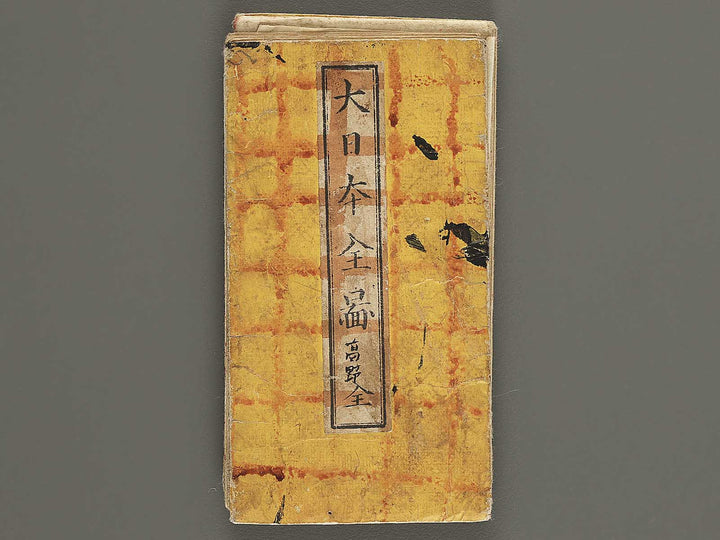 大日本全圖 高野全